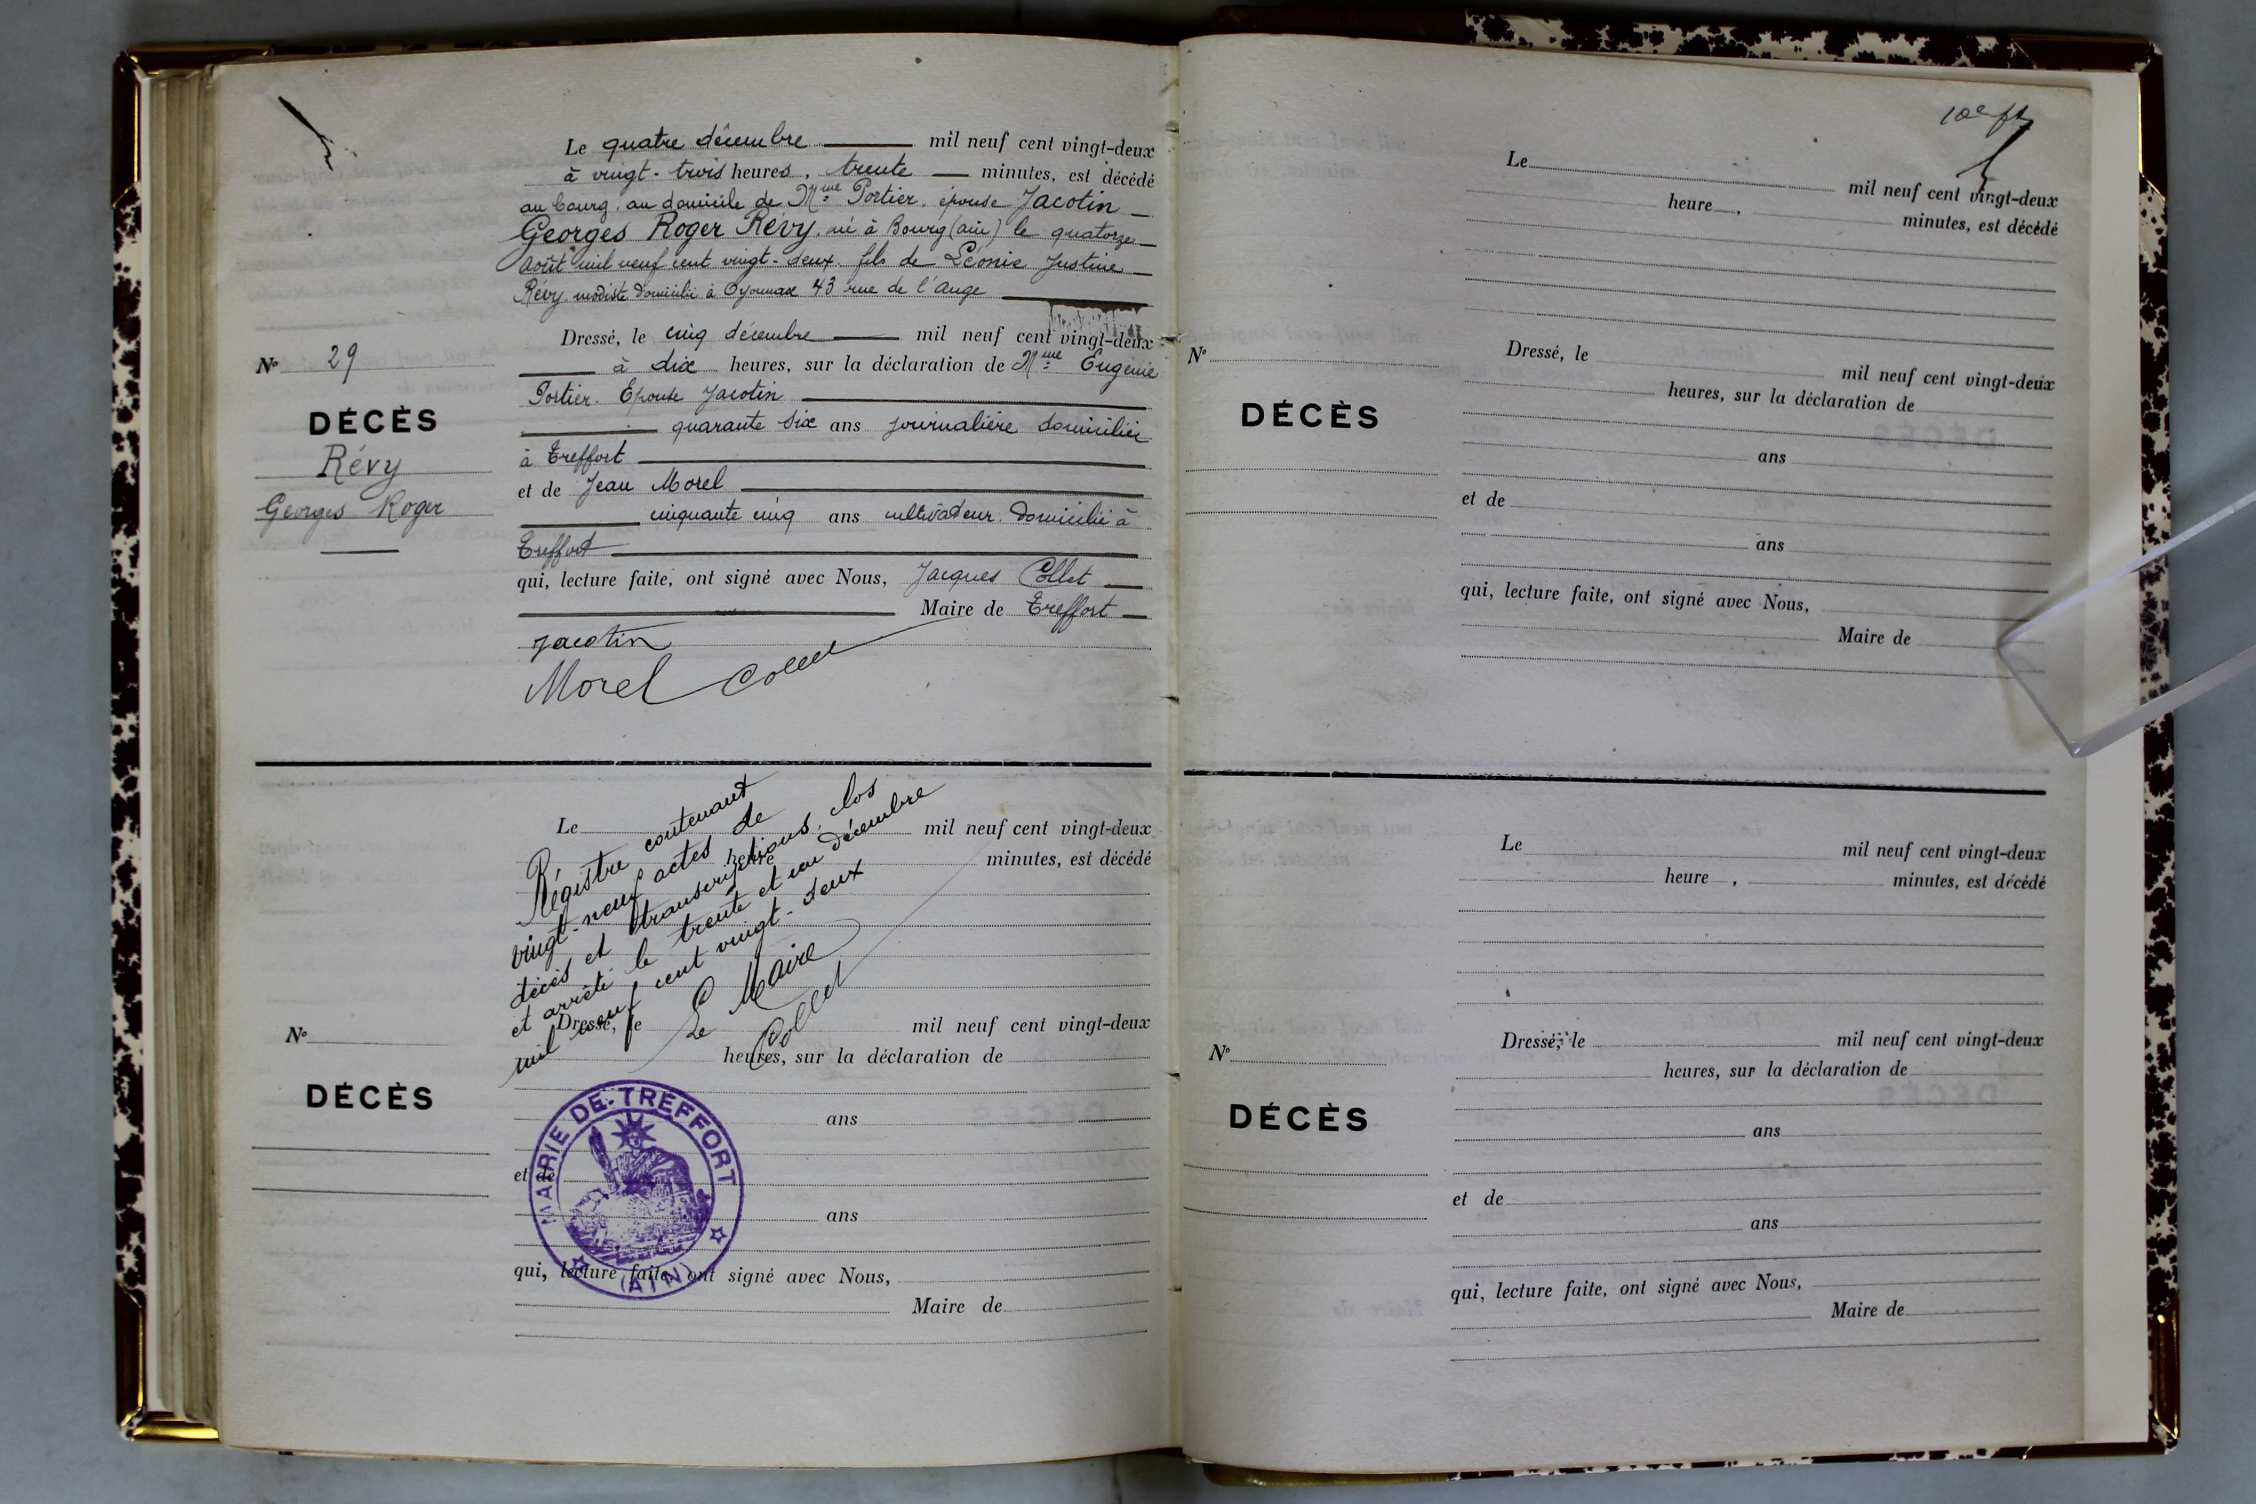 Le quatre décembre mil neuf cent vingt-deux
à vingt-trois heures, trente minutes, est décédé
au bourg, au domicile de Mme Portier, épouse Jacotin
Georges Roger Révy, né à Bourg (ain) le quatorze
Août mil neuf cent vingt-deux, fils de Léonie Justine
Révy modiste domicilié à Oyonnax 43 rue de l'ange
Dressé, le cinq décembre mil neuf cent vingt-deux
à dix heures, sur la déclaration de Mme Eugénie
Portier. Epouse Jacotin
quarante six ans journalière domiciliée
à Treffort
et de Jean Morel
cinquante cinq ans cultivateur. domicilié à
Treffort
qui, lecture faite, ont signé avec Nous, Jacques Collet
Maire de Treffort
Jacotin
Morel Collet
No 29
DÉCÈS
Révy
Georges Roger
Le mil neuf cent vingt-deux
heure minutes, est décédé
Régistre contenant
vingt-neuf actes de
décès et transcriptions, clos
et arrêté le trente et un décembre
mil neuf cent vingt-deux
Le Maire
Collet
Dressé, le mil neuf cent vingt-deux
heures, sur la déclaration de
ans
et de
ans
qui, lecture faite, ont signé avec Nous,
Maire de
No
DÉCÈS
MAIRIE DE TREFFORT
(AIN)
Le mil neuf cent vingt-deux
heure , minutes, est décédé
Dressé, le mil neuf cent vingt-deux
heures, sur la déclaration de
ans
et de
ans
qui, lecture faite, ont signé avec Nous,
Maire de
No
DÉCÈS
Le mil neuf cent vingt-deux
heure , minutes, est décédé
Dressé, le mil neuf cent vingt-deux
heures, sur la déclaration de
ans
et de
ans
qui, lecture faite, ont signé avec Nous,
Maire de
No
DÉCÈS